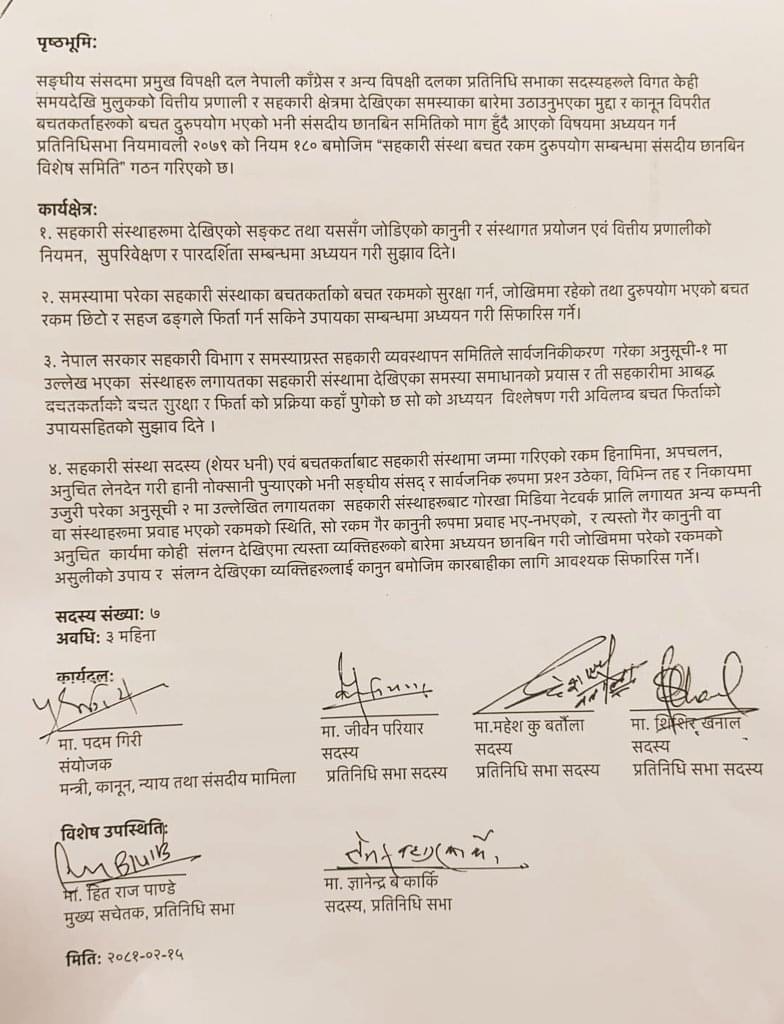 पृष्ठभूमि:
सङ्घीय संसदमा प्रमुख विपक्षी दल नेपाली काँग्रेस र अन्य विपक्षी दलका प्रतिनिधि सभाका सदस्यहरूले विगत केही
समयदेखि मुलुकको वित्तीय प्रणाली र सहकारी क्षेत्रमा देखिएका समस्याका बारेमा उठाउनुभएका मुद्दा र कानून विपरीत
बचतकर्ताहरूको बचत दुरुपयोग भएको भनी संसदीय छानबिन समितिको माग हुँदै आएको विषयमा अध्ययन गर्न
प्रतिनिधिसभा नियमावली २०७९ को नियम १८० बमोजिम “सहकारी संस्था बचत रकम दुरुपयोग सम्बन्धमा संसदीय छानबिन
विशेष समिति” गठन गरिएको छ।
कार्यक्षेत्र:
१. सहकारी संस्थाहरूमा देखिएको सङ्कट तथा यससँग जोडिएको कानुनी र संस्थागत प्रयोजन एवं वित्तीय प्रणालीको
नियमन, सुपरिवेक्षण र पारदर्शिता सम्बन्धमा अध्ययन गरी सुझाव दिने।
२. समस्यामा परेका सहकारी संस्थाका बचतकर्ताको बचत रकमको सुरक्षा गर्न, जोखिममा रहेको तथा दुरुपयोग भएको बचत
रकम छिटो र सहज ढङ्गले फिर्ता गर्न सकिने उपायका सम्बन्धमा अध्ययन गरी सिफारिस गर्ने।
३. नेपाल सरकार सहकारी विभाग र समस्याग्रस्त सहकारी व्यवस्थापन समितिले सार्वजनिकीकरण गरेका अनुसूची-१ मा
उल्लेख भएका संस्थाहरू लगायतका सहकारी संस्थामा देखिएका समस्या समाधानको प्रयास र ती सहकारीमा आबद्ध
बचतकर्ताको बचत सुरक्षा र फिर्ता को प्रक्रिया कहाँ पुगेको छ सो को अध्ययन विश्लेषण गरी अविलम्ब बचत फिर्ताको
उपायसहितको सुझाव दिने ।
४. सहकारी संस्था सदस्य (शेयर धनी) एवं बचतकर्ताबाट सहकारी संस्थामा जम्मा गरिएको रकम हिनामिना, अपचलन,
अनुचित लेनदेन गरी हानी नोक्सानी पुऱ्याएको भनी सङ्घीय संसद् र सार्वजनिक रूपमा प्रश्न उठेका, विभिन्न तह र निकायमा
उजुरी परेका अनुसूची २ मा उल्लेखित लगायतका सहकारी संस्थाहरूबाट गोरखा मिडिया नेटवर्क प्रालि लगायत अन्य कम्पनी
वा संस्थाहरूमा प्रवाह भएको रकमको स्थिति, सो रकम गैर कानुनी रूपमा प्रवाह भए-नभएको, र त्यस्तो गैर कानुनी वा
अनुचित कार्यमा कोही संलग्न देखिएमा त्यस्ता व्यक्तिहरूको बारेमा अध्ययन छानबिन गरी जोखिममा परेको रकमको
असुलीको उपाय र संलग्न देखिएका व्यक्तिहरूलाई कानुन बमोजिम कारबाहीका लागि आवश्यक सिफारिस गर्ने।
सदस्य संख्या: ७
अवधि: ३ महिना
कार्यदल:
मा. पदम गिरी मा. जीवन परियार मा.महेश कु बर्तौला मा. शिशिर खनाल
संयोजक सदस्य सदस्य सदस्य
मन्त्री, कानून, न्याय तथा संसदीय मामिला प्रतिनिधि सभा सदस्य प्रतिनिधि सभा सदस्य प्रतिनिधि सभा सदस्य
विशेष उपस्थिति:
मा. हित राज पाण्डे मा. ज्ञानेन्द्र बै कार्कि
मुख्य सचेतक, प्रतिनिधि सभा सदस्य, प्रतिनिधि सभा
मिति: २०८१-०२-१५